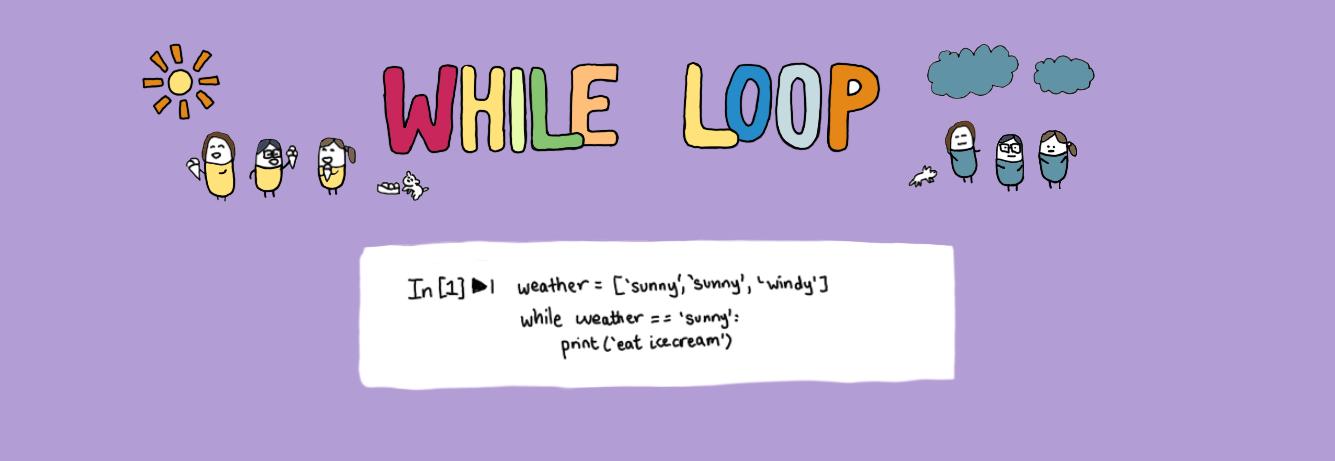 WHILE LOOP
In [1] ▶| weather = ['sunny', 'sunny', 'windy']
while weather == 'sunny':
print ('eat icecream')